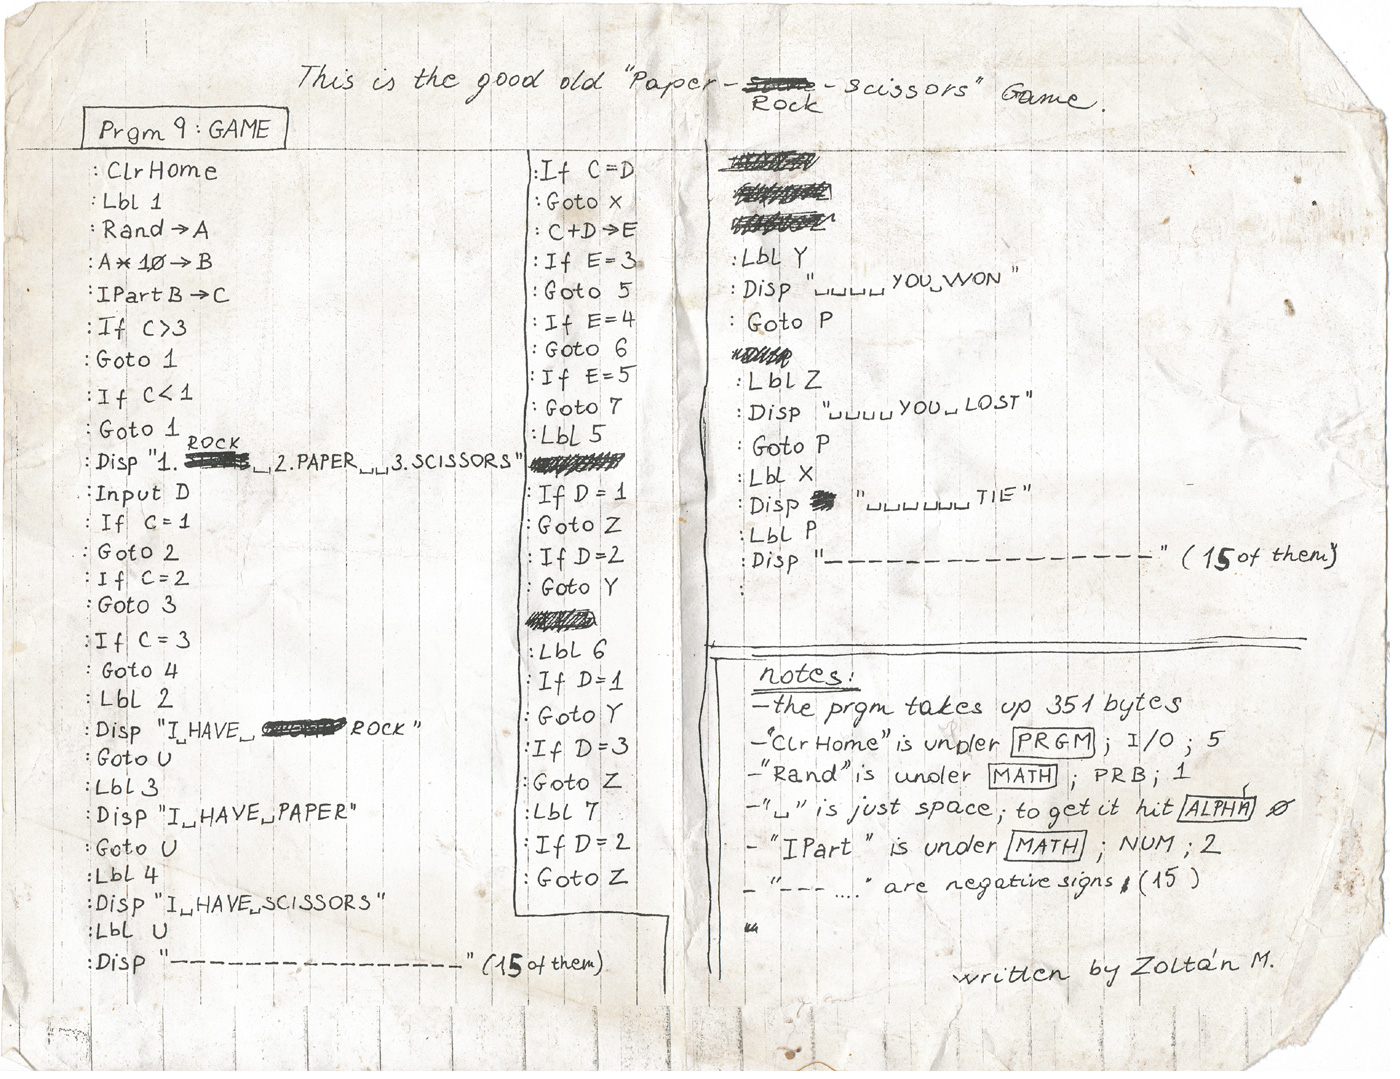 This is the good old "Paper-Rock-scissors" Game.
Prgm 9: GAME
:ClrHome
:Lbl 1
:Rand→A
:A*10→B
:IPart B→C
:If C>3
:Goto 1
:If C<1
:Goto 1
:Disp "1. ROCK␣2.PAPER␣␣3.SCISSORS"
:Input D
:If C=1
:Goto 2
:If C=2
:Goto 3
:If C=3
:Goto 4
:Lbl 2
:Disp "I␣HAVE␣ROCK"
:Goto U
:Lbl 3
:Disp "I␣HAVE␣PAPER"
:Goto U
:Lbl 4
:Disp "I␣HAVE␣SCISSORS"
:Lbl U
:Disp "---------------" (15 of them)
:If C=D
:Goto X
:C+D→E
:If E=3
:Goto 5
:If E=4
:Goto 6
:If E=5
:Goto 7
:Lbl 5
:If D=1
:Goto Z
:If D=2
:Goto Y
:Lbl 6
:If D=1
:Goto Y
:If D=3
:Goto Z
:Lbl 7
:If D=2
:Goto Z
:Lbl Y
:Disp "␣␣␣␣YOU␣WON"
:Goto P
:Lbl Z
:Disp "␣␣␣␣YOU␣LOST"
:Goto P
:Lbl X
:Disp "␣␣␣␣␣␣TIE"
:Lbl P
:Disp "---------------" (15 of them)
:
notes:
-the prgm takes up 351 bytes
-"ClrHome" is under PRGM; I/O; 5
-"Rand" is under MATH; PRB; 1
-"␣" is just space; to get it hit ALPHA 0
-"IPart" is under MATH; NUM; 2
-"--- ...." are negative signs (15)
written by Zoltán M.